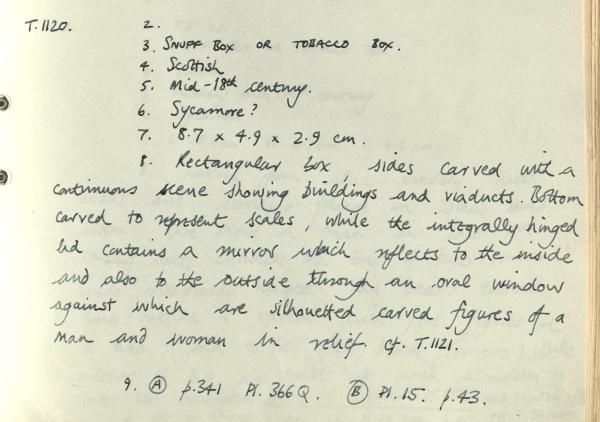 T.1120. 2.
3. SNUFF BOX OR TOBACCO BOX.
4. Scottish
5. Mid-18th century.
6. Sycamore?
7. 8.7 x 4.9 x 2.9 cm.
8. Rectangular box, sides carved with a
continuous scene showing buildings and viaducts. Bottom
carved to represent scales, while the integrally hinged
lid contains a mirror which reflects to the inside
and also to the outside through an oval window
against which are silhouetted carved figures of a
man and woman in relief. cf. T.1121.
9. Ⓐ p.341 Pl. 366Q. Ⓑ Pl.15. p.43.